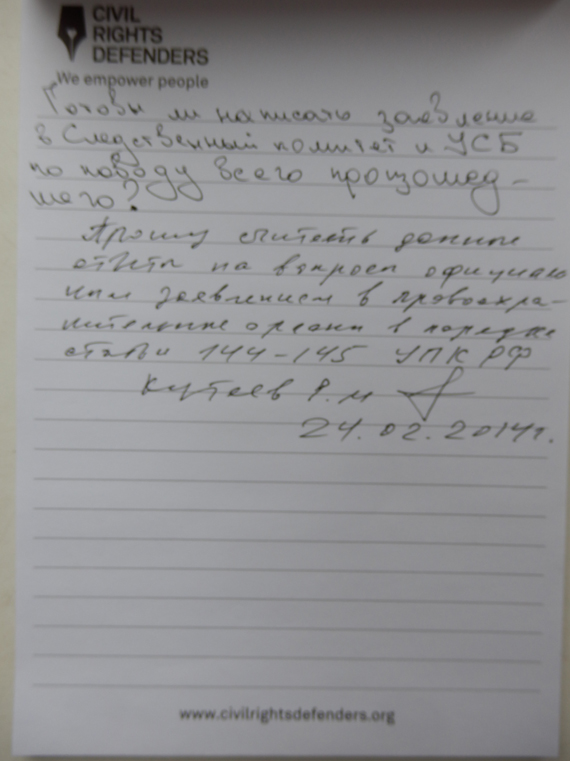 CIVIL
RIGHTS
DEFENDERS
We empower people
Готовы ли написать заявление
в Следственный комитет и УСБ
по поводу всего произошед-
шего?
Прошу считать данные
ответы на вопросы официаль
ным заявлением в правоохра-
нительные органы в порядке
статьи 144-145 УПК РФ
Кутаев Р. М
24.02.2014г.
www.civilrightsdefenders.org